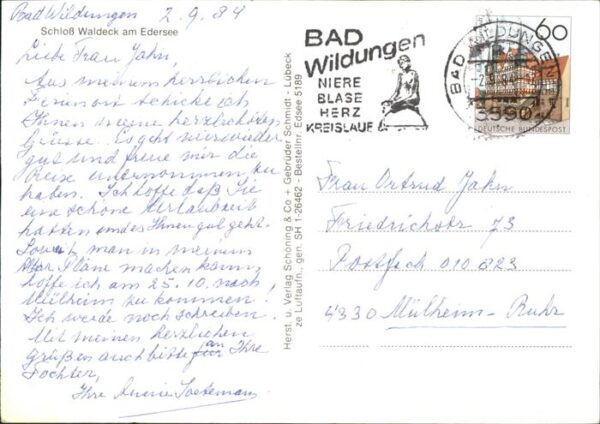 Bad Wildungen 2.9.84
Schloß Waldeck am Edersee
Liebe Frau Jahn,
Aus meinem herrlichen
Ferienort schicke ich
Ihnen meine herzlichsten
Grüsse. Es geht mir wieder
gut und freue mir die
Reise unternommen zu
haben. Ich hoffe daß Sie
eine schöne Urlaubszeit
hatten und es Ihnen gut geht.
Soweit man in meinem
Alter Pläne machen kann,
hoffe ich am 25.10. nach
Mülheim zu kommen.
Ich werde noch schreiben.
Mit meinen herzlichen
Grüßen auch bitte an Ihre
Tochter,
Ihre
Herst. u. Verlag Schöning & Co + Gebrüder Schmidt - Lübeck
ze Luftaufn., gen. SH 1-26462 - Bestellnr. Edsee 5189
BAD
Wildungen
NIERE
BLASE
HERZ
KREISLAUF
BAD WILDUNGEN
3590
60
DEUTSCHE BUNDESPOST
Frau Ortrud Jahn
Friedrichstr 73
Postfach 010823
4330 Mülheim-Ruhr